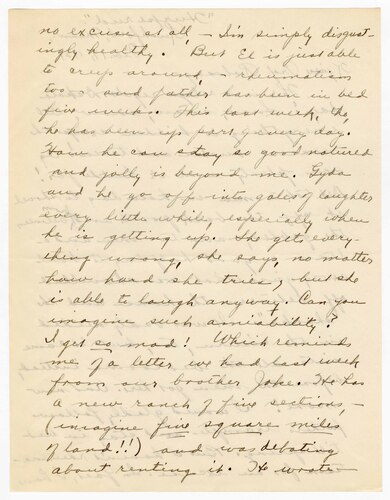 no excuse at all – I'm simply disgust-
ingly healthy. But El is just able
to creep around, rheumatism
too – and father has been in bed
five weeks. This last week, tho,
he has been up part of every day.
How he can stay so good natured
and jolly is beyond me. Lyda
and he go off into gales of laughter
every little while, especially when
he is getting up. She gets every-
thing wrong, she says, no matter
how hard she tries, but she
is able to laugh anyway. Can you
imagine such amiability?
I get so mad! Which reminds
me of a letter we had last week
from our brother Jake. He has
a new ranch of five sections, –
(imagine five square miles
of land!!) and was debating
about renting it. He wrote